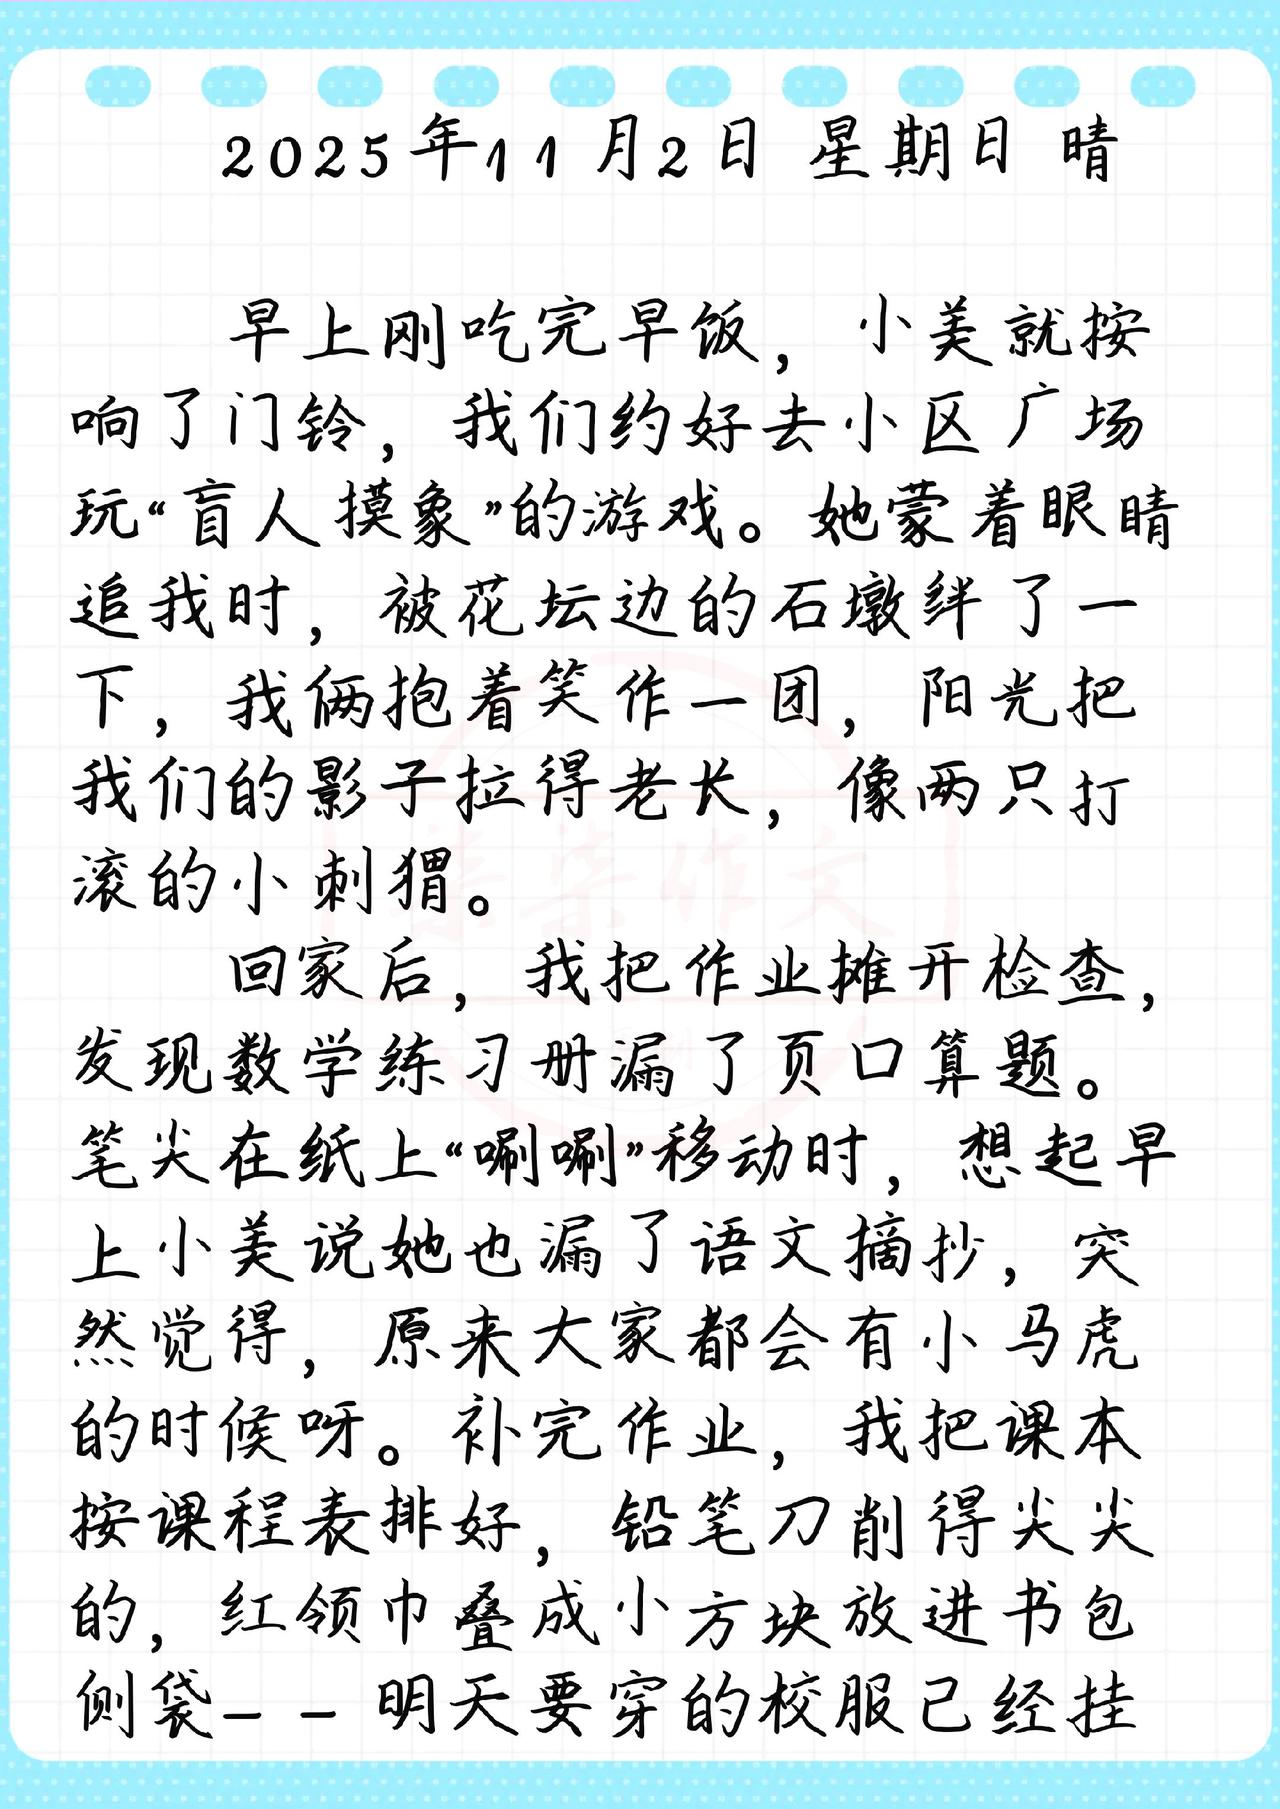 2025年11月2日 星期日 晴
早上刚吃完早饭，小美就按
响了门铃，我们约好去小区广场
玩“盲人摸象”的游戏。她蒙着眼睛
追我时，被花坛边的石墩绊了一
下，我俩抱着笑作一团，阳光把
我们的影子拉得老长，像两只打
滚的小刺猬。
回家后，我把作业摊开检查，
发现数学练习册漏了页口算题。
笔尖在纸上“唰唰”移动时，想起早
上小美说她也漏了语文摘抄，突
然觉得，原来大家都会有小马虎
的时候呀。补完作业，我把课本
按课程表排好，铅笔刀削得尖尖
的，红领巾叠成小方块放进书包
侧袋——明天要穿的校服已经挂